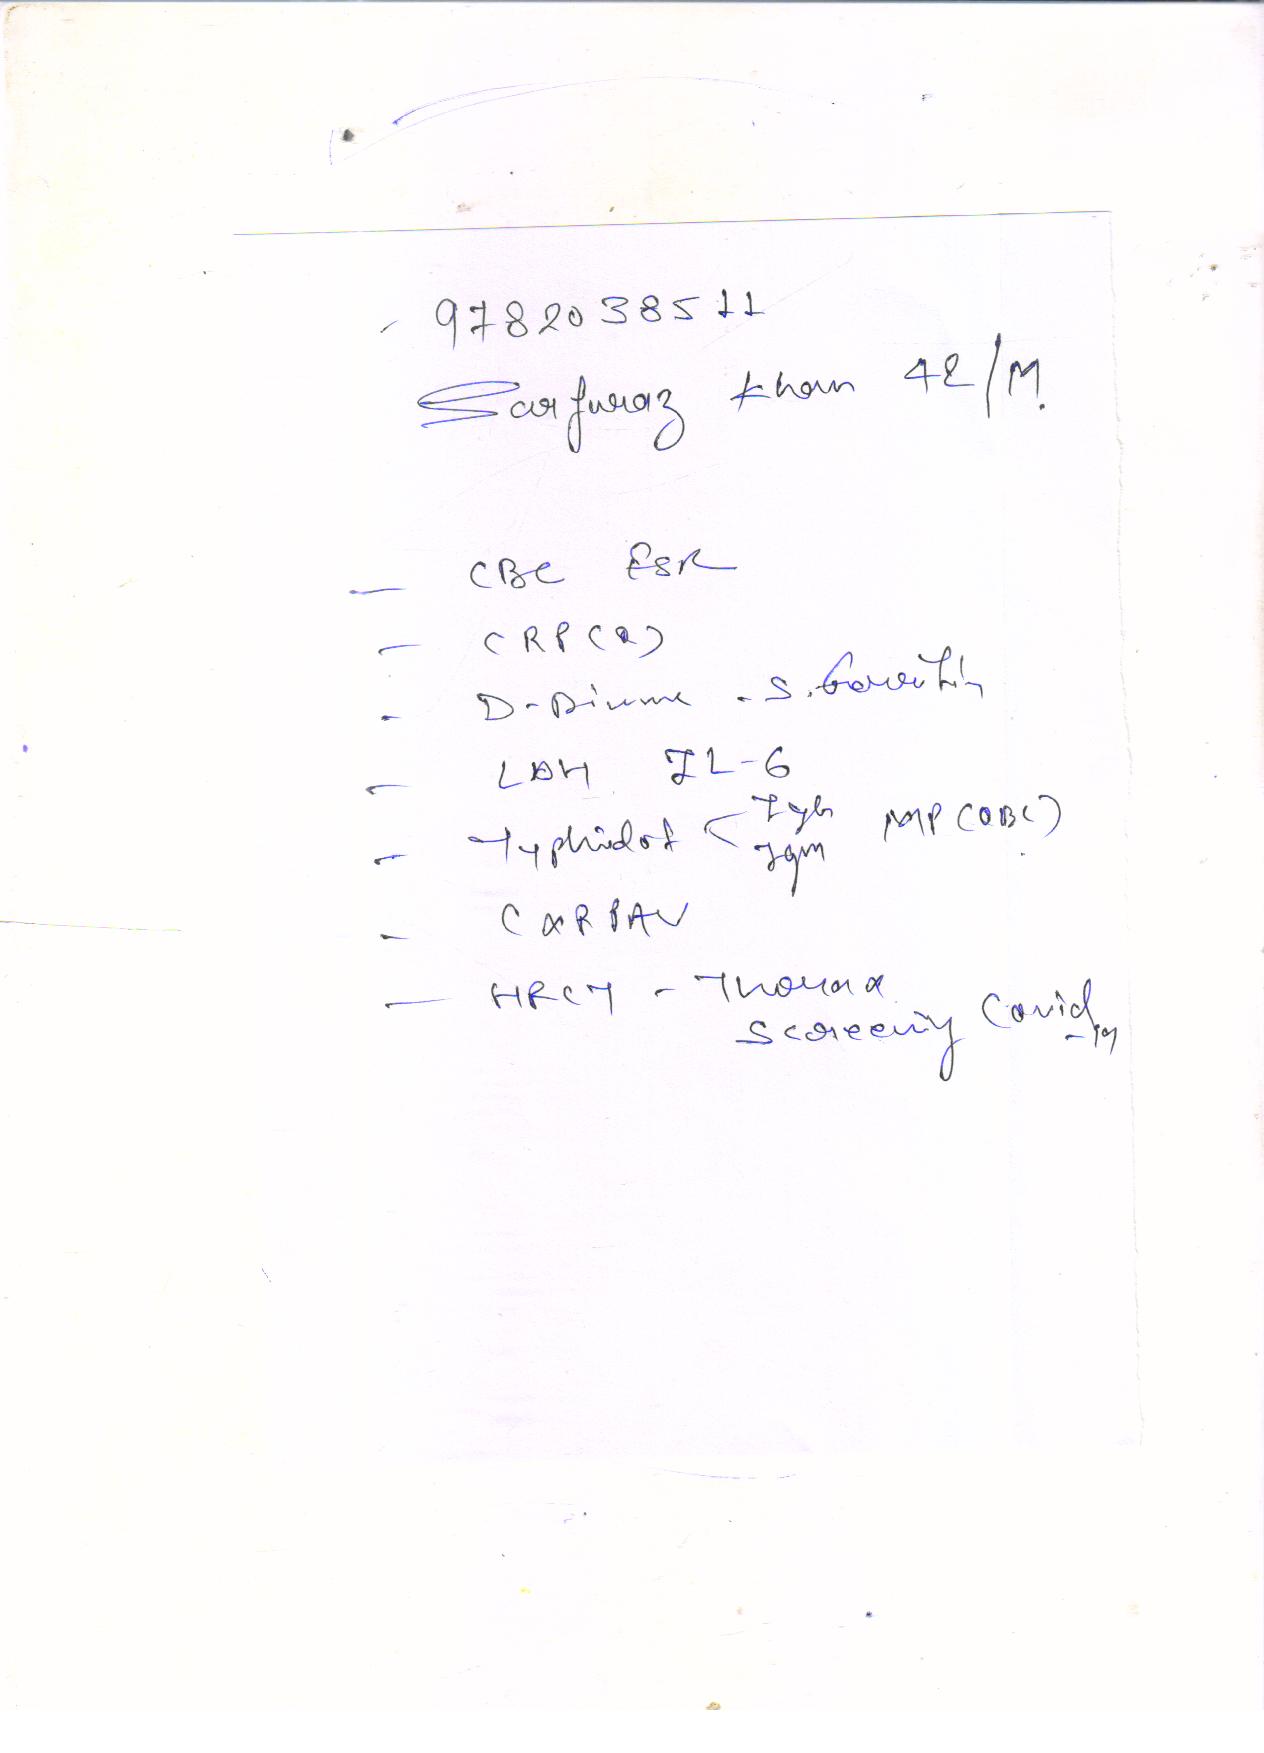 9782038511
Sarfuraz Khan 42/M.
- CBC ESR
- CRP (Q)
- D-Dimme - S.
- LDH IL-6
- Typhidot < IgG IgM MP (QBC)
- CXR PAV
- HRCT - Thorax
Screening Covid-19